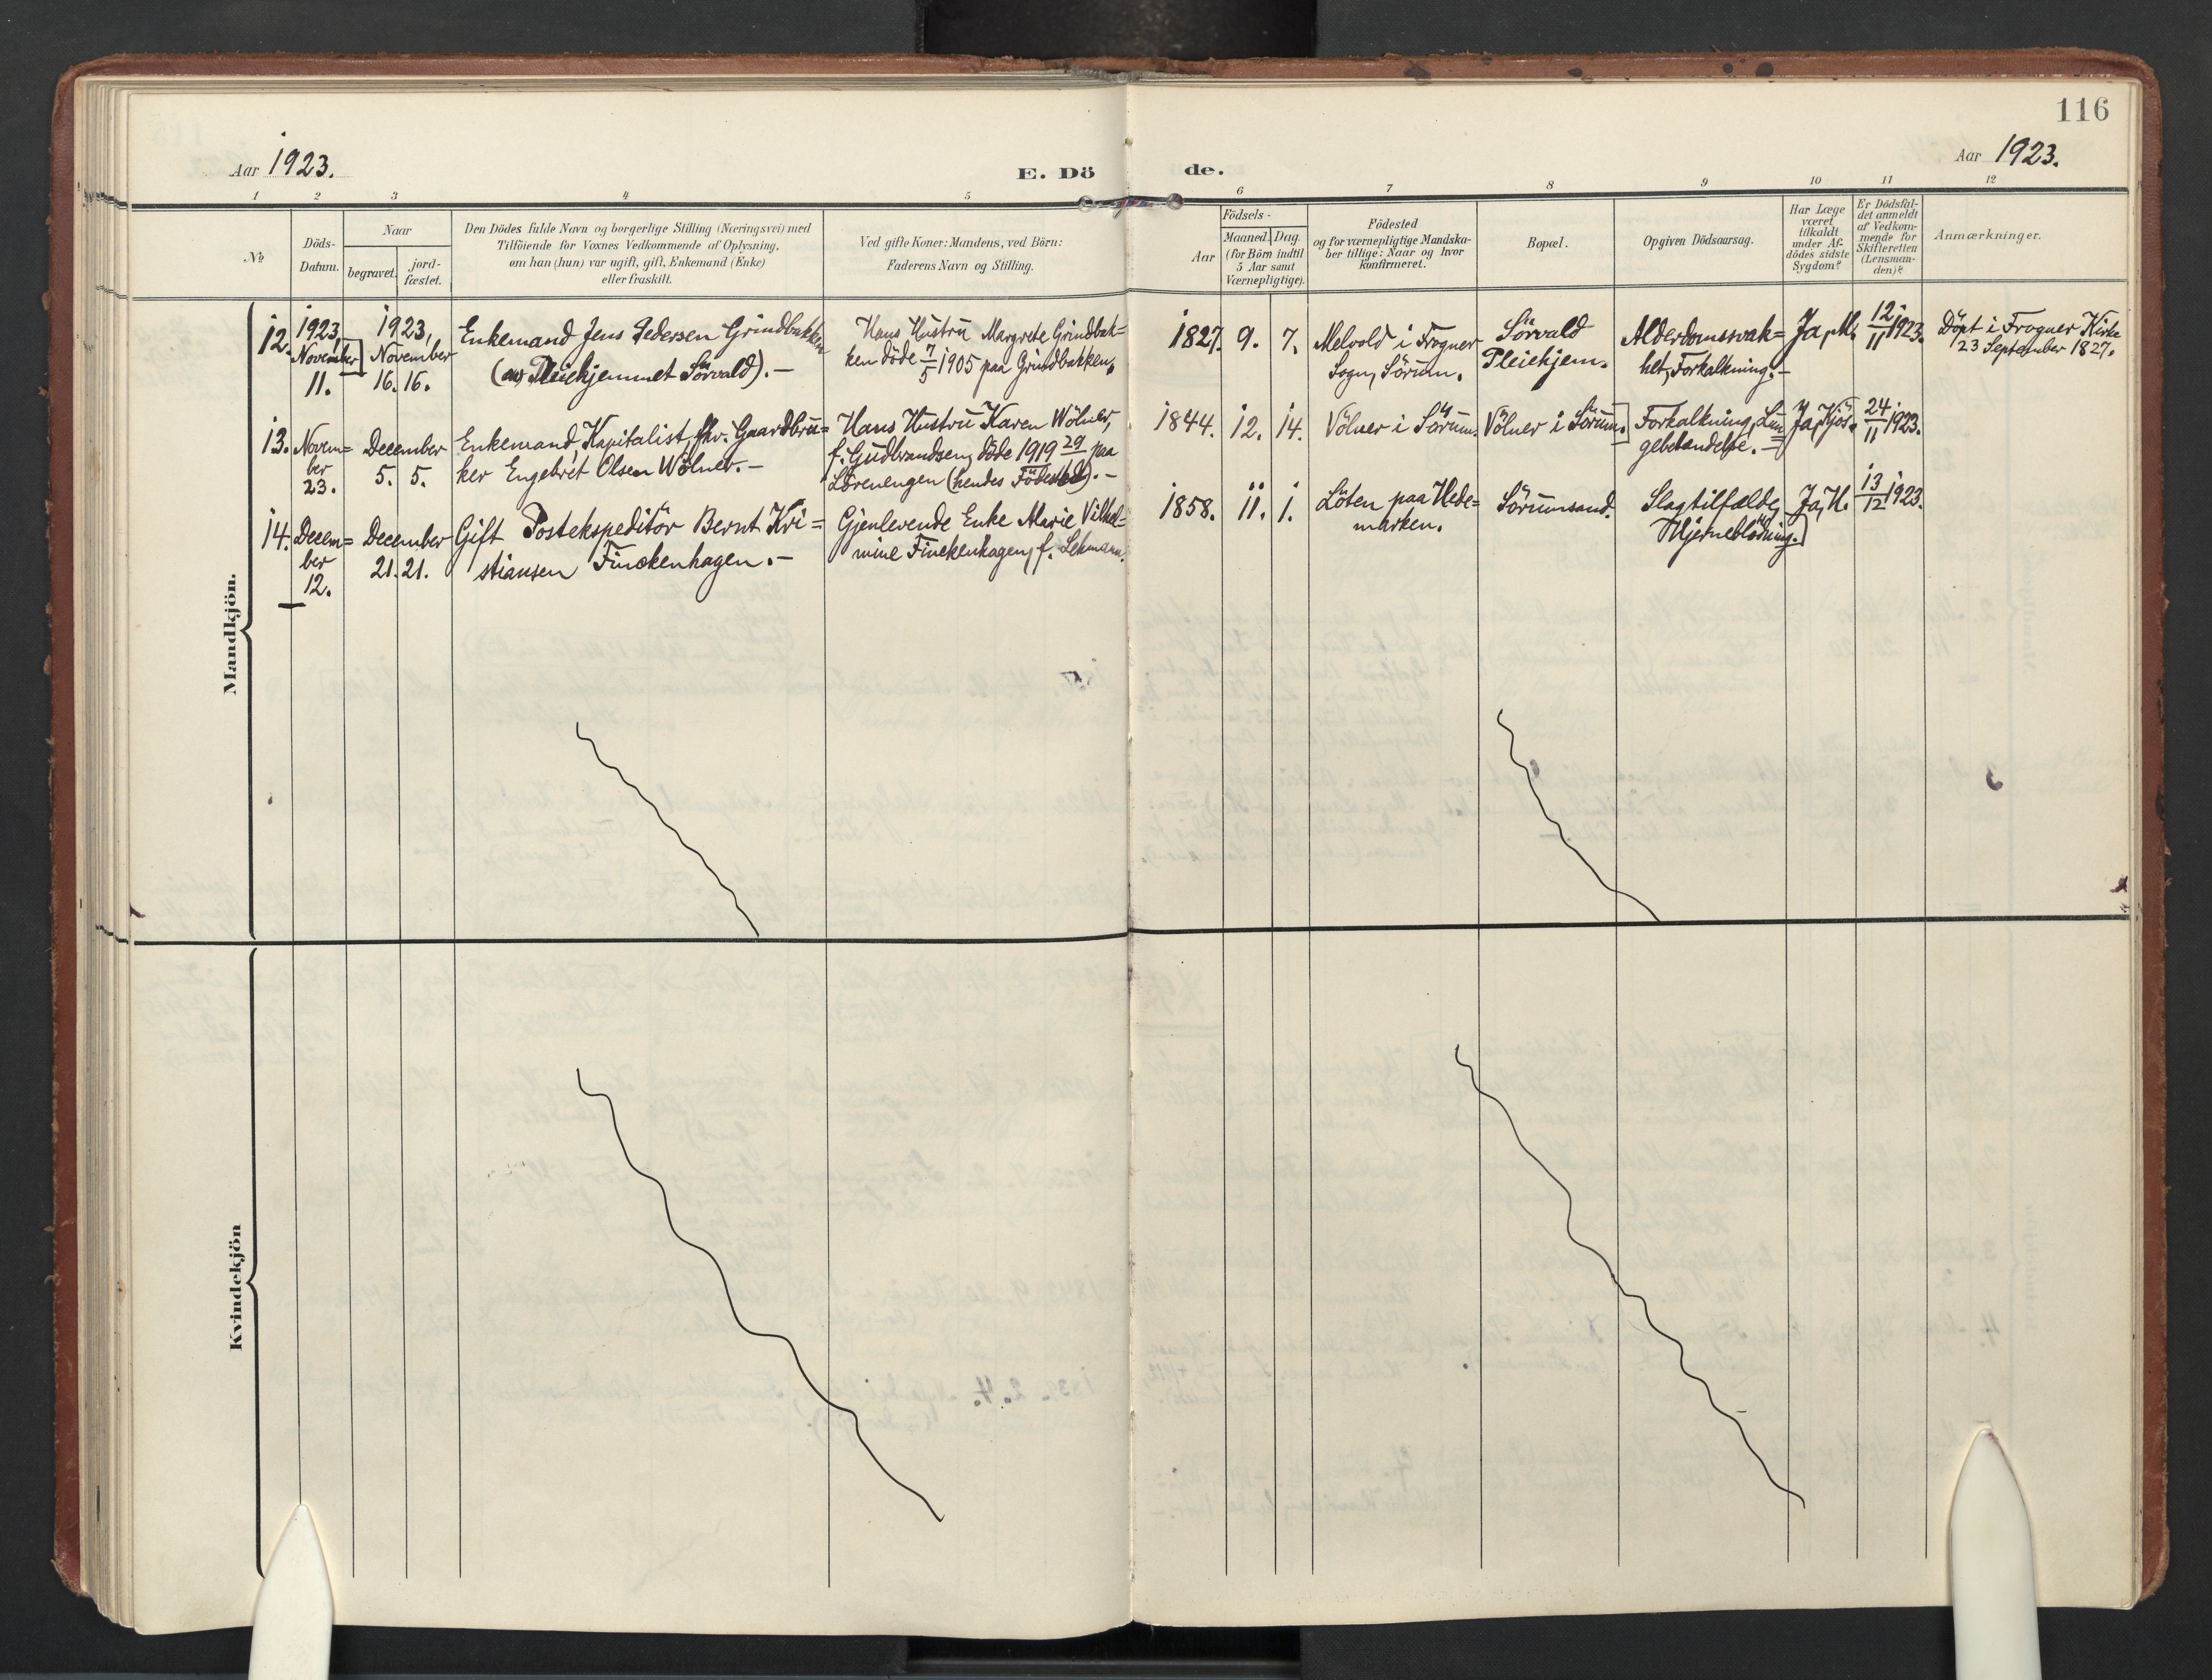 116
Aar 1923.
E. Dö
de.
Aar 1923.
1 2 3 4 5 6 7 8 9 10 11 12
No
Döds-
Datum.
Naar
begravet.
jord-
fæstet.
Den Dödes fulde Navn og borgerlige Stilling (Næringsvei) med
Tilföiende for Voxnes Vedkommende af Oplysning,
om han (hun) var ugift, gift, Enkemand (Enke)
eller fraskilt.
Ved gifte Koner: Mandens, ved Börn:
Faderens Navn og Stilling.
Födsels-
Aar
Maaned. Dag.
(for Börn indtil
5 Aar samt
Værnepligtige).
Födested
og for værnepligtige Mandska-
ber tillige: Naar og hvor
konfirmeret.
Bopæl.
Opgiven Dödsaarsag.
Har Læge
været
tilkaldt
under Af-
dödes sidste
Sygdom?
Er Dödsfal-
det anmeldt
af Vedkom-
mende for
Skifteretten
(Lensman-
den)?
Anmærkninger.
Mandkjön.
12.
1923,
November
11.
1923,
November
16. 16.
Enkemand Jens Pedersen Grindbakken
(av Pleiehjemmet Sörvald). —
Hans Hustru Margrete Grindbak=
ken döde 7/5 1905 paa Grindbakken,
1827. 9. 7.
Melvold i Frogner
Sogn, Sörum.
Sörvald
Pleiehjem.
Alderdomssvak=
het, Forkalkning. —
Ja,
12/11 1923.
Döpt i Frogner Kirke
23 September 1827.
13.
Novem=
ber
23.
December
5. 5.
Enkemand, Kapitalist, fhv. Gaardbru=
ker Engebret Olsen Wölner. —
Hans Hustru Karen Wölner,
f. Gudbrandsen, döde 1919 29/4 paa
Lörenengen (hendes Födested). —
1844. 12. 14.
Völner i Sörum.
Völner i Sörum.
Forkalkning, Lun
gebetændelse. —
Ja, Kjös.
24/11 1923.
14.
Decem=
ber
12.
December
21. 21.
Gift Postekspeditör Bernt Kri=
stiansen Finckenhagen. —
Gjenlevende Enke Marie Vilhel=
mine Finckenhagen, f. Lehmann.
1858. 11. 1.
Löten paa Hede=
marken.
Sörumsand.
Slagtilfælde,
Hjerneblödning.
Ja, H.
13/12 1923.
Kvindekjön